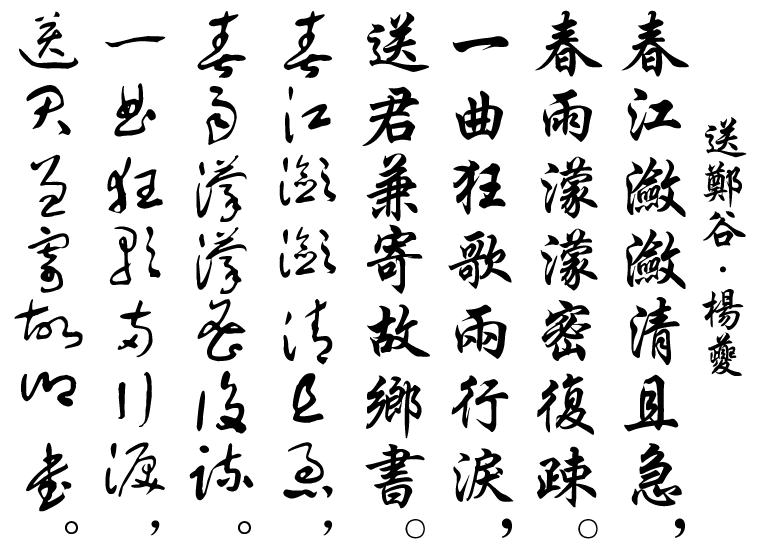 送鄭谷·楊夔
春江瀲瀲清且急，
春雨濛濛密復疎。
一曲狂歌兩行淚，
送君兼寄故鄉書。
春江瀲瀲清且急，
春雨濛濛密復疎。
一曲狂歌兩行淚，
送君兼寄故鄉書。